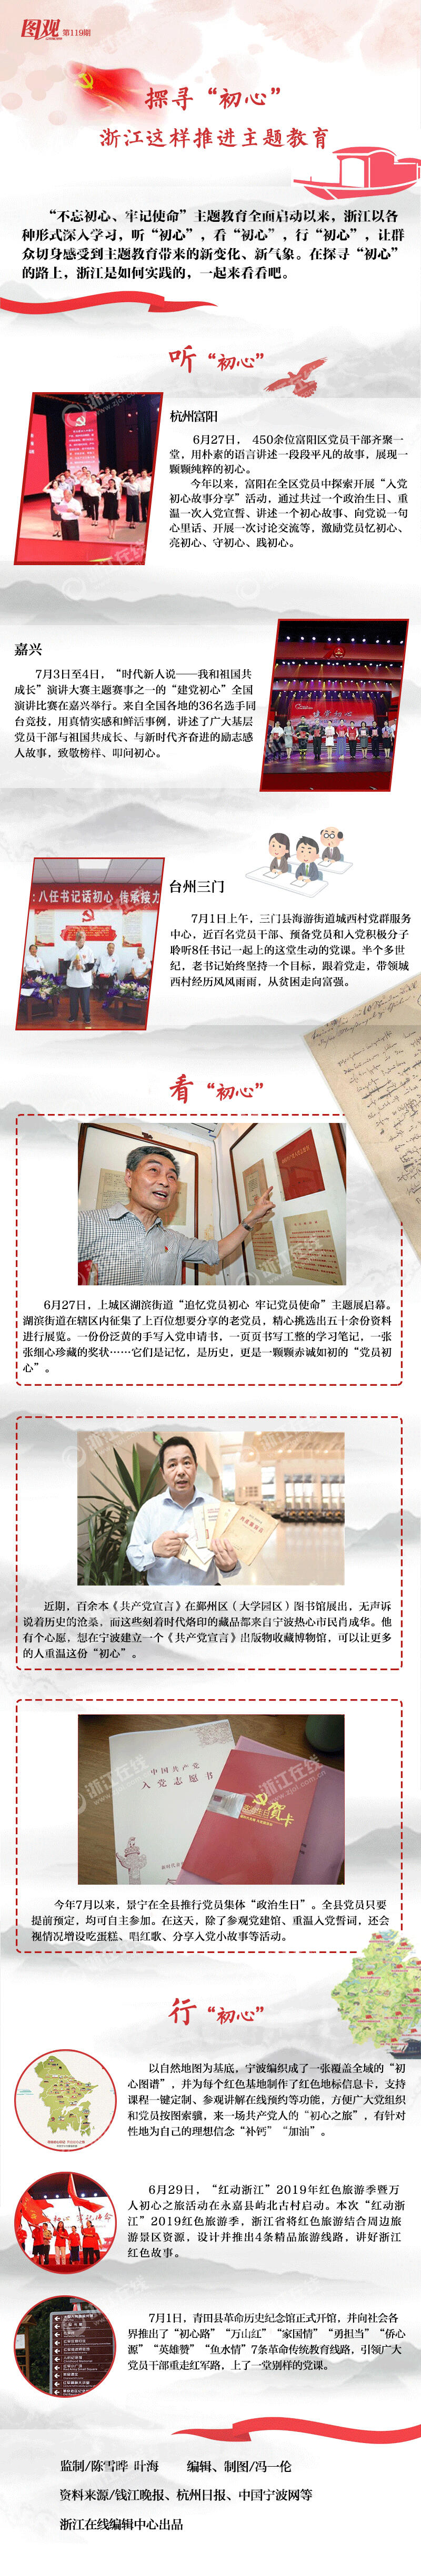 图观 第119期
探寻“初心”
浙江这样推进主题教育
“不忘初心、牢记使命”主题教育全面启动以来，浙江以各
种形式深入学习，听“初心”，看“初心”，行“初心”，让群
众切身感受到主题教育带来的新变化、新气象。在探寻“初心”
的路上，浙江是如何实践的，一起来看看吧。
听“初心”
杭州富阳
6月27日， 450余位富阳区党员干部齐聚一
堂，用朴素的语言讲述一段段平凡的故事，展现一
颗颗纯粹的初心。
今年以来，富阳在全区党员中探索开展“入党
初心故事分享”活动，通过共过一个政治生日、重
温一次入党宣誓、讲述一个初心故事、向党说一句
心里话、开展一次讨论交流等，激励党员忆初心、
亮初心、守初心、践初心。
嘉兴
7月3日至4日，“时代新人说——我和祖国共
成长”演讲大赛主题赛事之一的“建党初心”全国
演讲比赛在嘉兴举行。来自全国各地的36名选手同
台竞技，用真情实感和鲜活事例，讲述了广大基层
党员干部与祖国共成长、与新时代齐奋进的励志感
人故事，致敬榜样、叩问初心。
台州三门
：八任书记话初心 传承接力
7月1日上午，三门县海游街道城西村党群服务
中心，近百名党员干部、预备党员和入党积极分子
聆听8任书记一起上的这堂生动的党课。半个多世
纪，老书记始终坚持一个目标，跟着党走，带领城
西村经历风风雨雨，从贫困走向富强。
看“初心”
6月27日，上城区湖滨街道“追忆党员初心 牢记党员使命”主题展启幕。
湖滨街道在辖区内征集了上百位想要分享的老党员，精心挑选出五十余份资料
进行展览。一份份泛黄的手写入党申请书，一页页书写工整的学习笔记，一张
张细心珍藏的奖状……它们是记忆，是历史，更是一颗颗赤诚如初的“党员初
心”。
近期，百余本《共产党宣言》在鄞州区（大学园区）图书馆展出，无声诉
说着历史的沧桑，而这些刻着时代烙印的藏品都来自宁波热心市民肖成华。他
有个心愿，想在宁波建立一个《共产党宣言》出版物收藏博物馆，可以让更多
的人重温这份“初心”。
中国共产党
入党志愿书
政治生日贺卡
浙江在线
今年7月以来，景宁在全县推行党员集体“政治生日”。全县党员只要
提前预定，均可自主参加。在这天，除了参观党建馆、重温入党誓词，还会
视情况增设吃蛋糕、唱红歌、分享入党小故事等活动。
行“初心”
以自然地图为基底，宁波编织成了一张覆盖全域的“初
心图谱”，并为每个红色基地制作了红色地标信息卡，支持
课程一键定制、参观讲解在线预约等功能，方便广大党组织
和党员按图索骥，来一场共产党人的“初心之旅”，有针对
性地为自己的理想信念“补钙”“加油”。
6月29日，“红动浙江”2019年红色旅游季暨万
人初心之旅活动在永嘉县屿北古村启动。本次“红动浙
江”2019红色旅游季，浙江省将红色旅游结合周边旅
游景区资源，设计并推出4条精品旅游线路，讲好浙江
红色故事。
7月1日，青田县革命历史纪念馆正式开馆，并向社会各
界推出了“初心路”“万山红”“家国情”“勇担当”“侨心
源”“英雄赞”“鱼水情”7条革命传统教育线路，引领广大
党员干部重走红军路，上了一堂别样的党课。
监制/陈雪晔 叶海 编辑、制图/冯一伦
资料来源/钱江晚报、杭州日报、中国宁波网等
浙江在线编辑中心出品